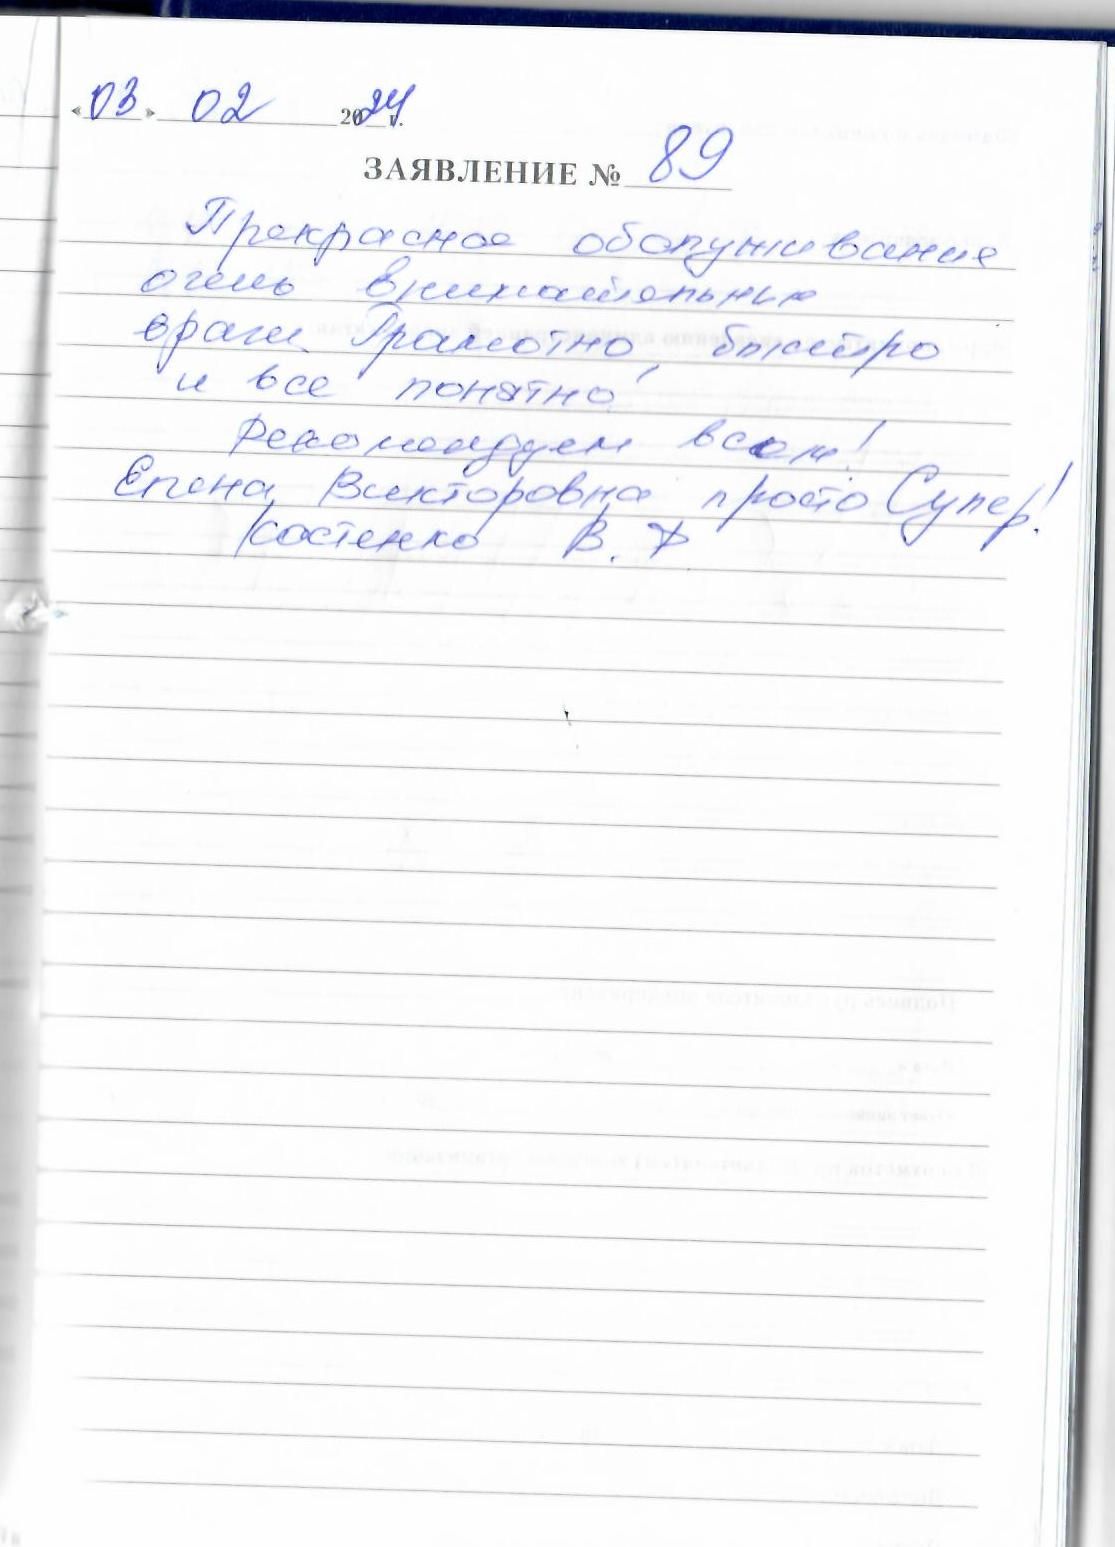 «03» 02 2024 г.
ЗАЯВЛЕНИЕ № 89
Прекрасное обслуживание
очень внимательные
врачи. Грамотно, быстро
и все понятно,
Рекомендуем всем!
Елена Викторовна просто Супер!
Костенко В. Ф